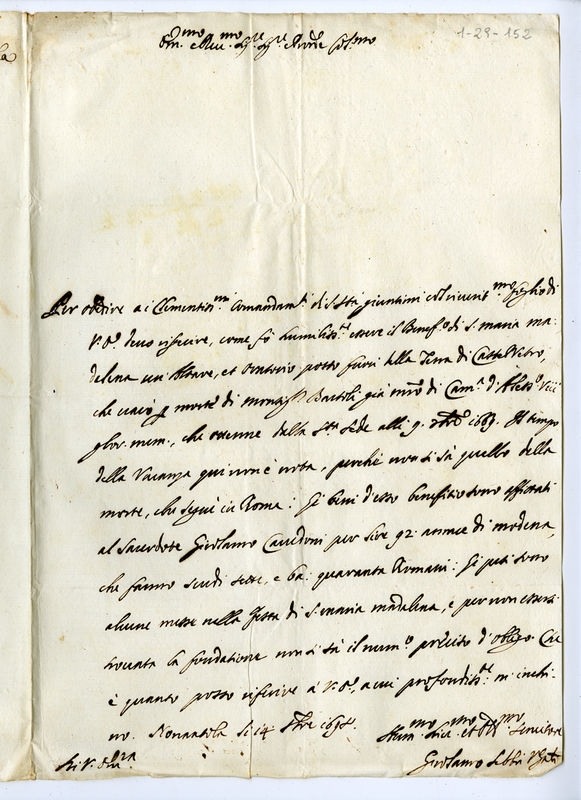 1-29-152
Per obedire a i Clementiss.mi Comandam.ti di S. Sta giuntimi col riverit.mo foglio di
V. E. devo riferire, come fò humiliss.te essere il Benef.o di S. Maria Ma:
dalena un Altare, et Oratorio posto fuori della Terra di Castel Vetro,
che vacò p morte di Monsig.r Bartoli già mro di Cam.a d'Aless.o VIII
glor. mem., che ottenne dalla S.ta Sede alli 9. 1689. Il tempo
della Vacanza qui non è noto, perché non si sà quello della
morte, che seguì in Roma: Gi beni d'esso benefitio sono affittati
al Sacerdote Girolamo Cavedoni per lire 92 annue di Modena,
che fanno scudi sette, e ba: quaranta Romani: Gi pesi sono
alcune messe nella festa di S. Maria Madalena, e per non essersi
trovata la fondatione non si sà il num.o preciso d'obligo. Che
è quanto posso riferire à V. E., a cui profondiss.te m'inchi:
no. Nonantola li 14
Di V. Em.za
Hum.mo Dev.mo et Obl.mo Servitore
Girolamo